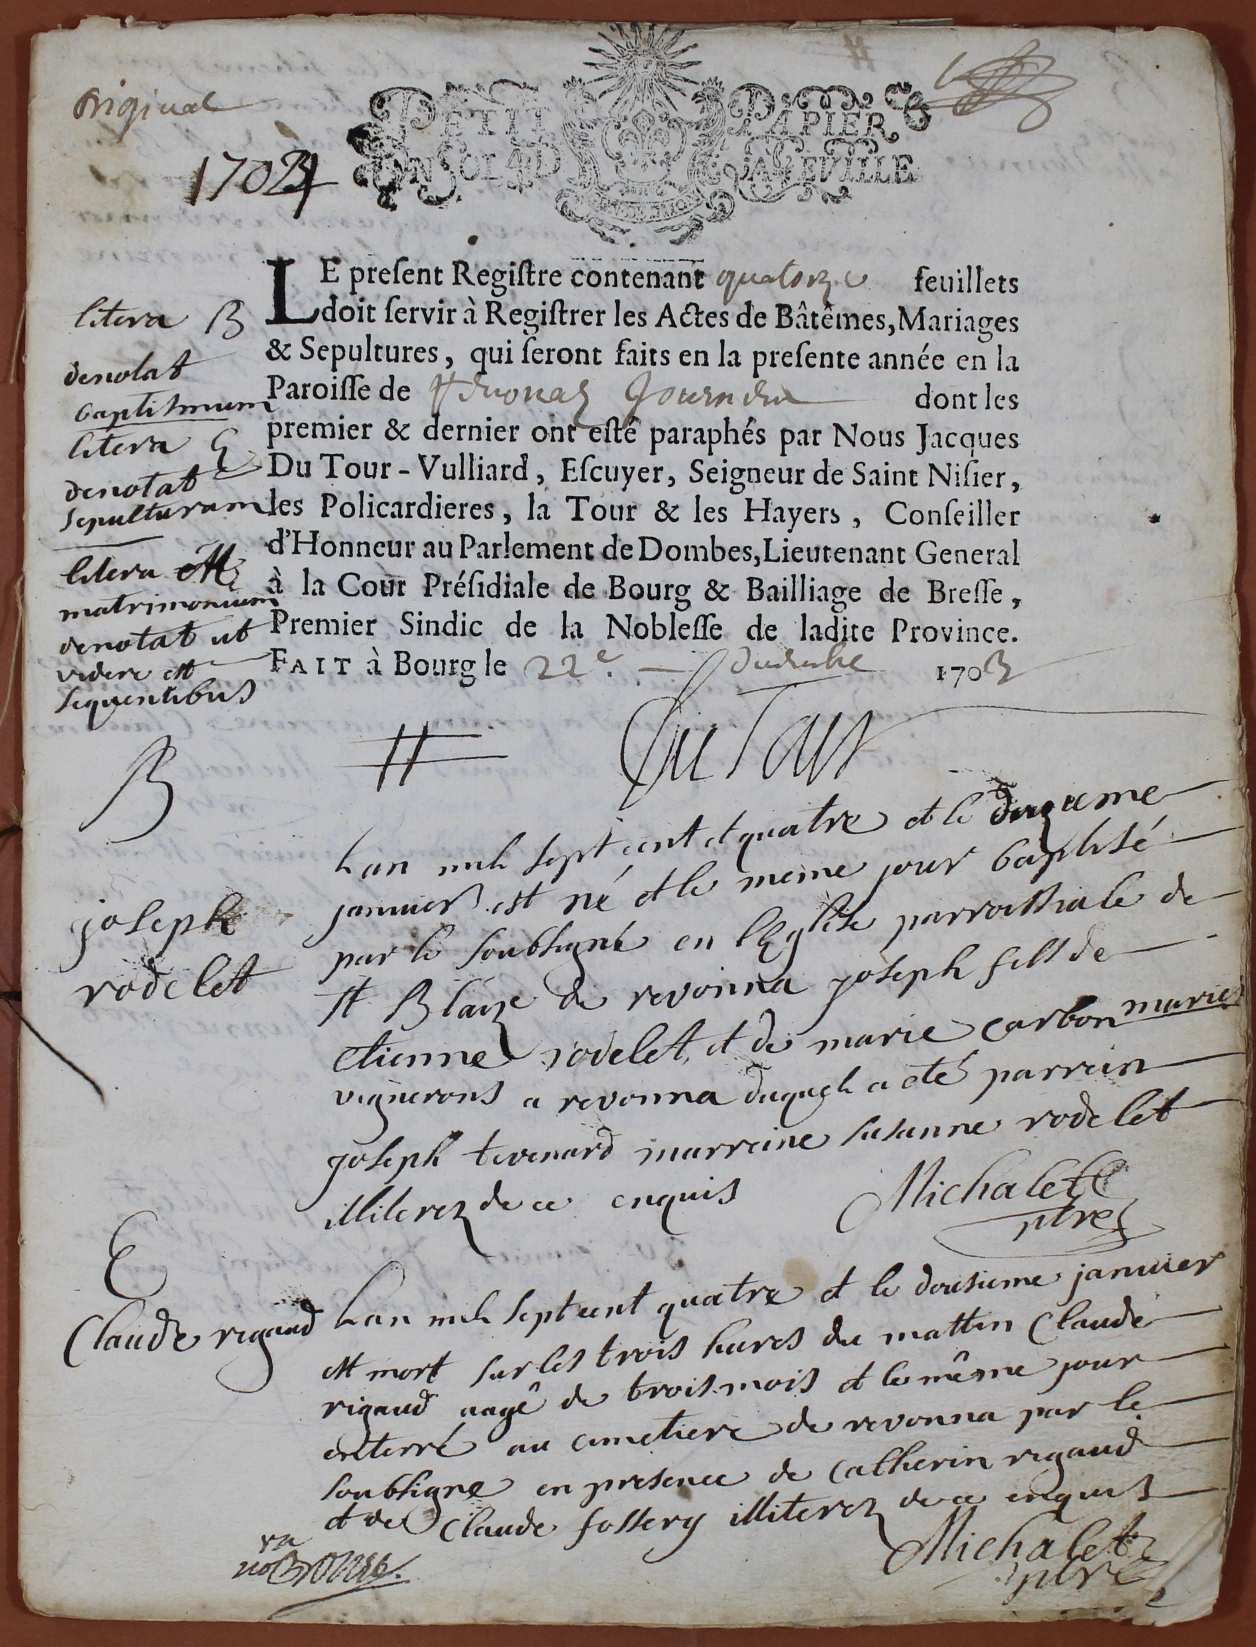 original
1704
PETIT PAPIER
UN SOL 4 D LA FEVILLE
LE preſent Regiſtre contenant quatorze feuillets
doit ſervir à Regiſtrer les Actes de Bâtêmes, Mariages
& Sepultures, qui ſeront faits en la preſente année en la
Paroiſſe de Journans dont les
premier & dernier ont eſté paraphés par Nous Jacques
Du Tour-Vulliard, Eſcuyer, Seigneur de Saint Niſier,
les Policardieres, la Tour & les Hayers, Conſeiller
d'Honneur au Parlement de Dombes, Lieutenant General
à la Cour Préſidiale de Bourg & Bailliage de Breſſe,
Premier Sindic de la Nobleſſe de ladite Province.
FAIT à Bourg le 22e. 1703
Du Tour
litera B
denotat
baptismum
litera E
denotat
sepulturam
litera M
matrimonium
denotat ut
videre est
sequentibus
B
joseph
rodelet
Lan mil sept cent et quatre et le
janvier est né et le meme jour baptisé
par le soubsigné en l'Eglise parrossiale de
st Blaize de revonna joseph fils de
etienne rodelet et de marie carbon mariez
vignerons a revonna duquel a eté parrein
joseph tevenard marreine susanne rodelet
illiterez de ce enquis
Michalet
ptre
E
Claude rigaud
Lan mil sept cent quatre et le dousieme janvier
est mort sur les trois heures du mattin Claude
rigaud aagé de trois mois et le même jour
enterré au cimetiere de revonna par le
soubsigne en presence de Catherin rigaud
et de Claude fossery illiterez de ce enquis
Michalet
ptre